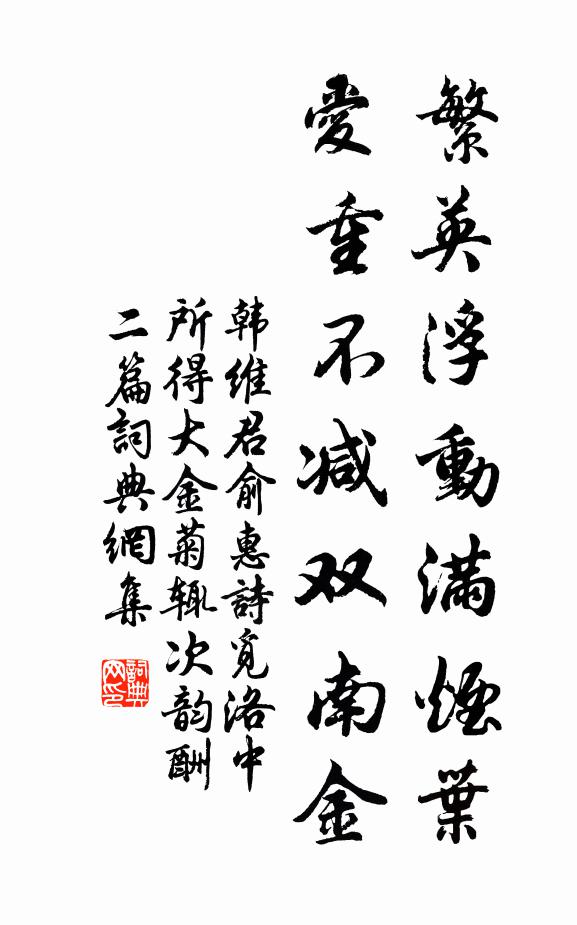 繁英浮動滿煙葉
愛重不减双南金
韩維君俞惠詩覓洛中
所得大金菊辄次韵酬
二篇詞典網集
詞典網印